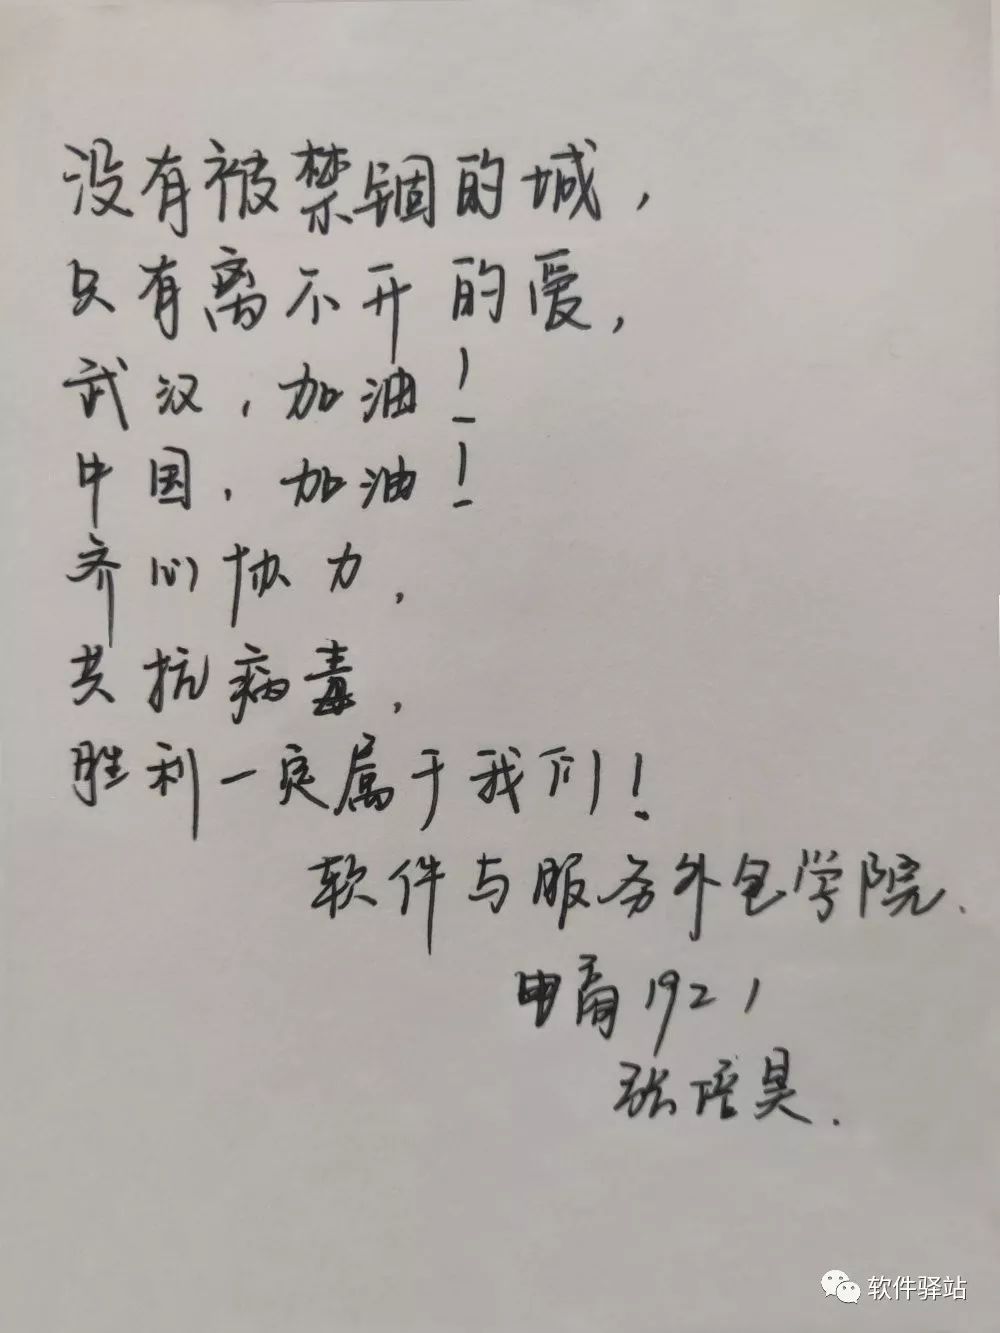 没有被禁锢的城，
只有离不开的爱，
武汉，加油！
中国，加油！
齐心协力，
共抗病毒，
胜利一定属于我们！
软件与服务外包学院.
电商1921
张培昊.
软件驿站